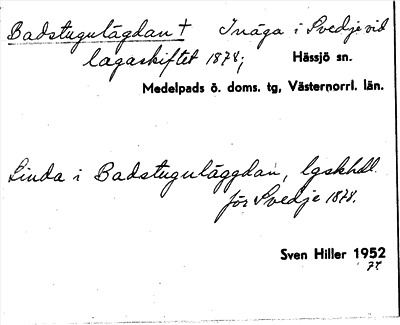 Badstugulägdan † Inäga i Svedje vid
lagaskiftet 1878; Hässjö sn.
Medelpads ö. doms. tg, Västernorrl. län.
Linda i Badstuguläggdan, lgskhdl.
för Svedje 1878.
Sven Hiller 1952